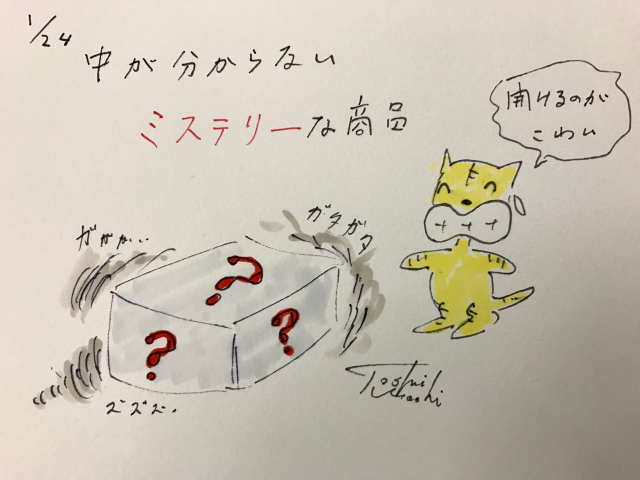 1/24
中が分からない
ミステリーな商品
開けるのが
こわい
ガガガ...
ガタガタ
?
?
?
ズズズ.